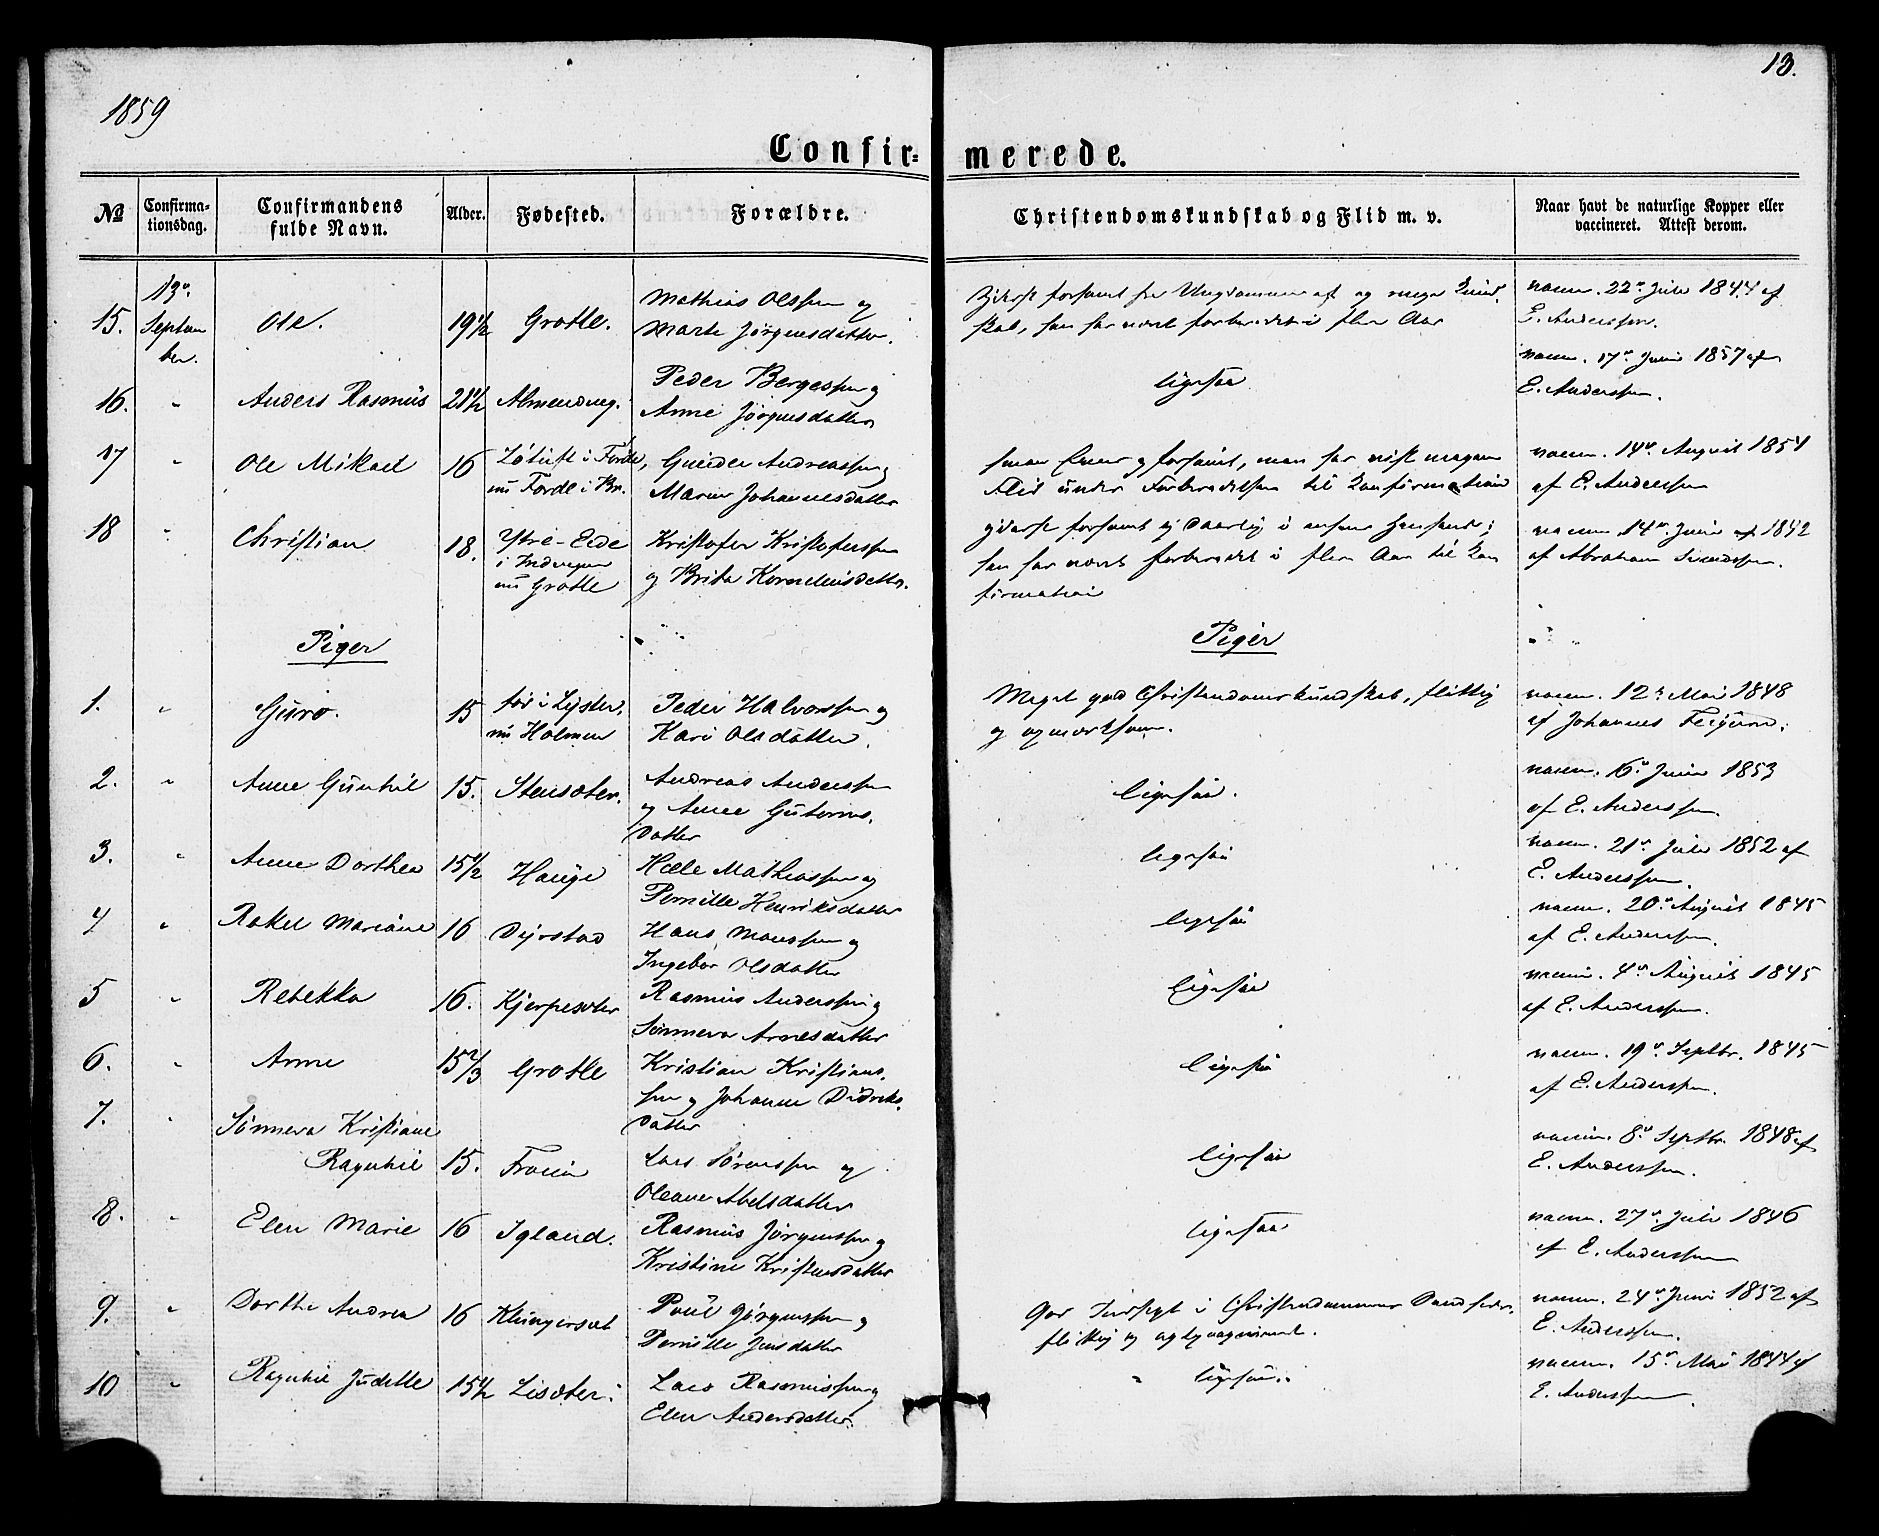 1859
13.
Confir=merede.
№
Confirma-
tionsdag.
Confirmandens
fulde Navn.
Alder.
Fødested.
Forældre.
Christendomskundskab og Flid m. v.
Naar havt de naturlige Kopper eller
vaccineret. Attest derom.
15. 13de Septem ber. Ole. 19½ Grotle. Mathias Olssen og
Marte Jørgensdatter.
forsømt fra Ungdommen af og ringe Kund
skab, han har været forberedet i flere Aar
vaccin. 22de Juli 1844 af
E. Anderssen.
16. " Anders Rasmus 21½ Almenning. Peder Bergessen og
Anne Jørgensdatter
ligesaa
vaccin. 17de Juni 1857 af
E. Anderssen.
17 " Ole Mikael 16 i Førde,
nu Førde i Br.
Andreassen og
Maren Johannesdatter
Evner og forsømt, men har vist megen
Flid under Forberedelsen til Konfirmation
vaccin. 14de August 1854
af E. Anderssen
18 " Christian 18. Ytre-Eide
i Indvigen
nu Grotle
Kristofer Kristoferssen
og Brita Korneliusdatter.
forsømt og
han har været forberedet i flere Aar til Kon
firmation
vaccin. 14de Juni af 1842
af Abraham
Piger
Piger
1. " Guro. 15 i Lyster,
nu Holmen
Peder Halvorssen og
Kari Olsdatter.
Meget god Christendomskundskab, flittig
og opmærksom.
vaccin. 12te Mai 1848
af Johannes
2. " Anne Gunhil 15. Stensæter. Andreas Anderssen
og Anne Gutorms-
datter
ligesaa.
vaccin. 16de Juni 1853
af E. Anderssen.
3. " Anne Dorthea 15½ Hauge Helle Mathiassen og
Pernille Henriksdatter
ligesaa
vaccin. 21de Juli 1852 af
E. Anderssen.
4 " Rakel Mariane 16 Dyrstad Hans Monssen og
Ingebor Olsdatter
ligesaa
vaccin. 20de August 1845
af E. Anderssen.
5 " Rebekka 16. Kjerpesæter Rasmus Anderssen og
Sønneva Arnesdatter
ligesaa
vaccin. 4de August 1845
af E. Anderssen.
6. " Anne 15⅔ Grotle Kristian Kristians-
sen og Johanne Didriks-
datter
ligesaa
vaccin. 19de Septbr. 1845
af E. Anderssen.
7. " Sønneva Kristiane
Ragnhil 15. Lars Sørenssen og
Oleane Abelsdatter
ligesaa
vaccin. 8de Septbr. 1848 af
E. Anderssen.
8. " Elen Marie 16 Igland. Rasmus Jørgenssen og
Kristine Kristensdatter
ligesaa
vaccin. 27de Juli 1846
af E. Anderssen
9. " Dorthe Andrea 16 Klungerset Poul Jørgenssen og
Pernille Jensdatter
God Indsigt i Christendommens Sandheder.
flittig og
vaccin. 24de Juni 1852 af
E. Anderssen.
10 " Ragnhil Judette 15½ Lisæter. Lars Rasmussen og
Elen Andersdatter.
" ligesaa.
vaccin. 15de Mai 1844 af
E. Anderssen.